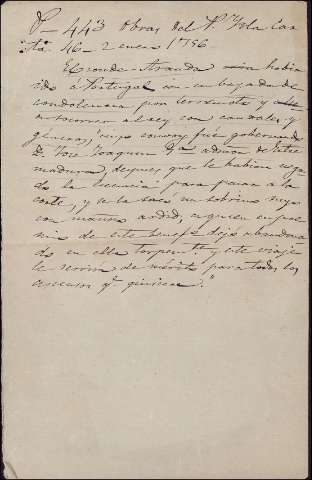 P - 443 Obras del P. Isla Car
ta 46 - 2 enero 1756
El conde Aranda habia
ido á Portugal con embajada de
condolencia por terremoto y
socorrer al rey con caudales y
géneros, "cuyo comboy fué gobernando
D. José Joaquin admon de Estre
madura, despues que le habian nega
do la licencia para pasar a la
corte, y se la sacó un sobrino suyo
con mucho ardid, a quien en pre
mio de este benefº dejó abandona
do en ella torpemte y este viaje
le servirá de mérito para todos los
ascensos qe quisiere."